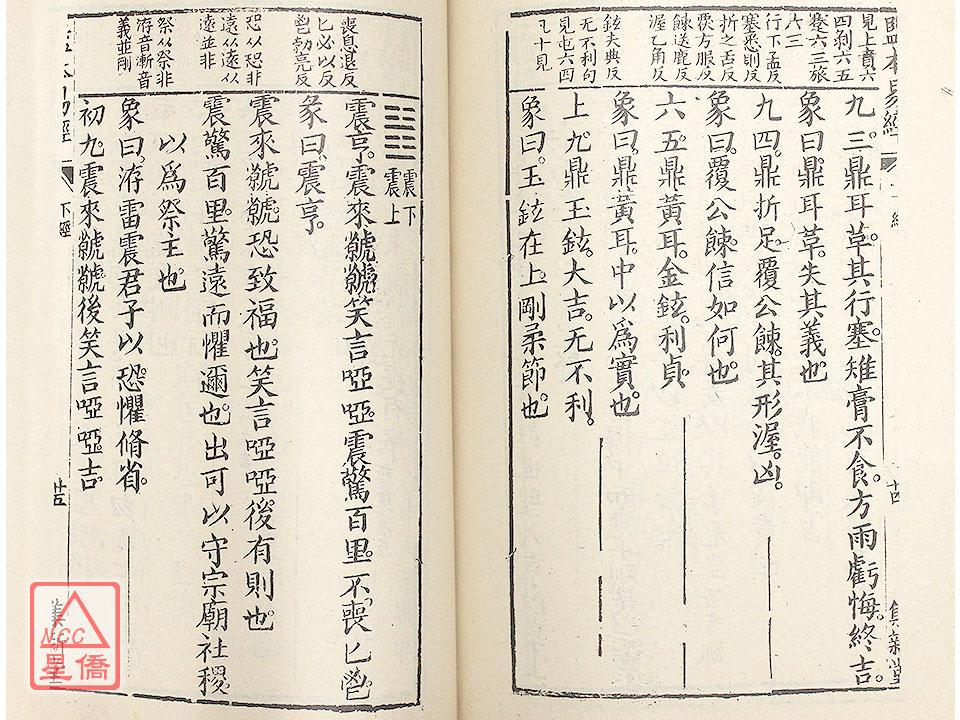 監本易經
見上賁六
四剥六五
蹇六三旅
六三
行下孟反
塞悉則反
折之舌反
覆方服反
餗送鹿反
渥乙角反
鉉夫典反
无不利句
見屯六四
凡十見
九三鼎耳革其行塞雉膏不食方雨虧悔終吉
象曰鼎耳革失其義也
九四鼎折足覆公餗其形渥凶
象曰覆公餗信如何也
六五鼎黃耳金鉉利貞
象曰鼎黃耳中以為實也
上九鼎玉鉉大吉无不利
象曰玉鉉在上剛柔節也
十四
喪息浪反
匕必以反
鬯勑亮反
恐从恐非
遠从遂从
遠並非
祭从祭非
洊音漸音
義並剛
䷲
震下
震上
震亨震來虩虩笑言啞啞震驚百里不喪匕鬯
彖曰震亨
震來虩虩恐致福也笑言啞啞後有則也
震驚百里驚遠而懼邇也出可以守宗廟社稷
以為祭主也
象曰洊雷震君子以恐懼脩省
初九震來虩虩後笑言啞啞吉
下經
廿五
NCC
星僑